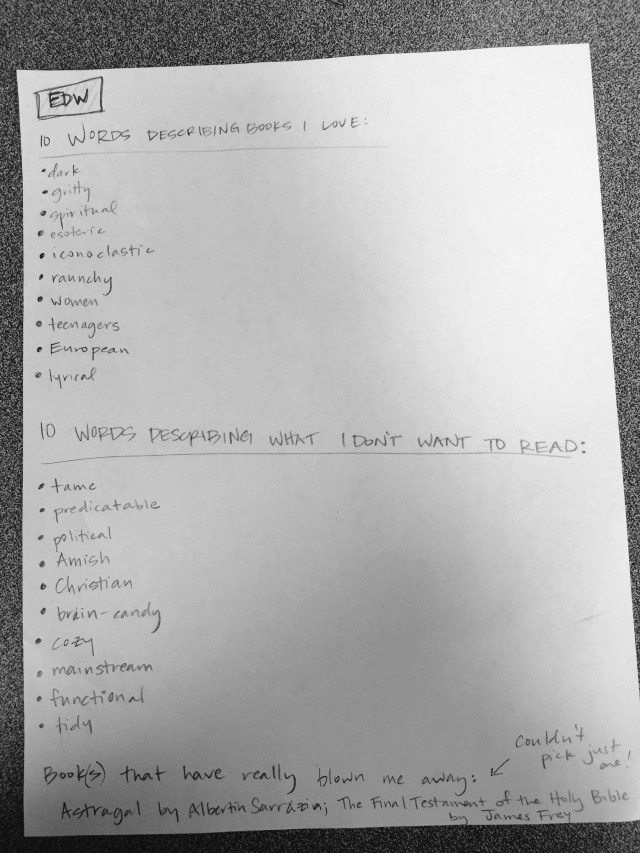 EDW
10 WORDS DESCRIBING BOOKS I LOVE:
• dark
• gritty
• spiritual
• esoteric
• iconoclastic
• raunchy
• women
• teenagers
• European
• lyrical
10 WORDS DESCRIBING WHAT I DON'T WANT TO READ:
• tame
• predicatable
• political
• Amish
• Christian
• brain-candy
• cozy
• mainstream
• functional
• tidy
Couldn't
pick just
one!
Book(s) that have really blown me away:
Astragal by Albertin Sarrazin; The Final Testament of the Holy Bible
by James Frey